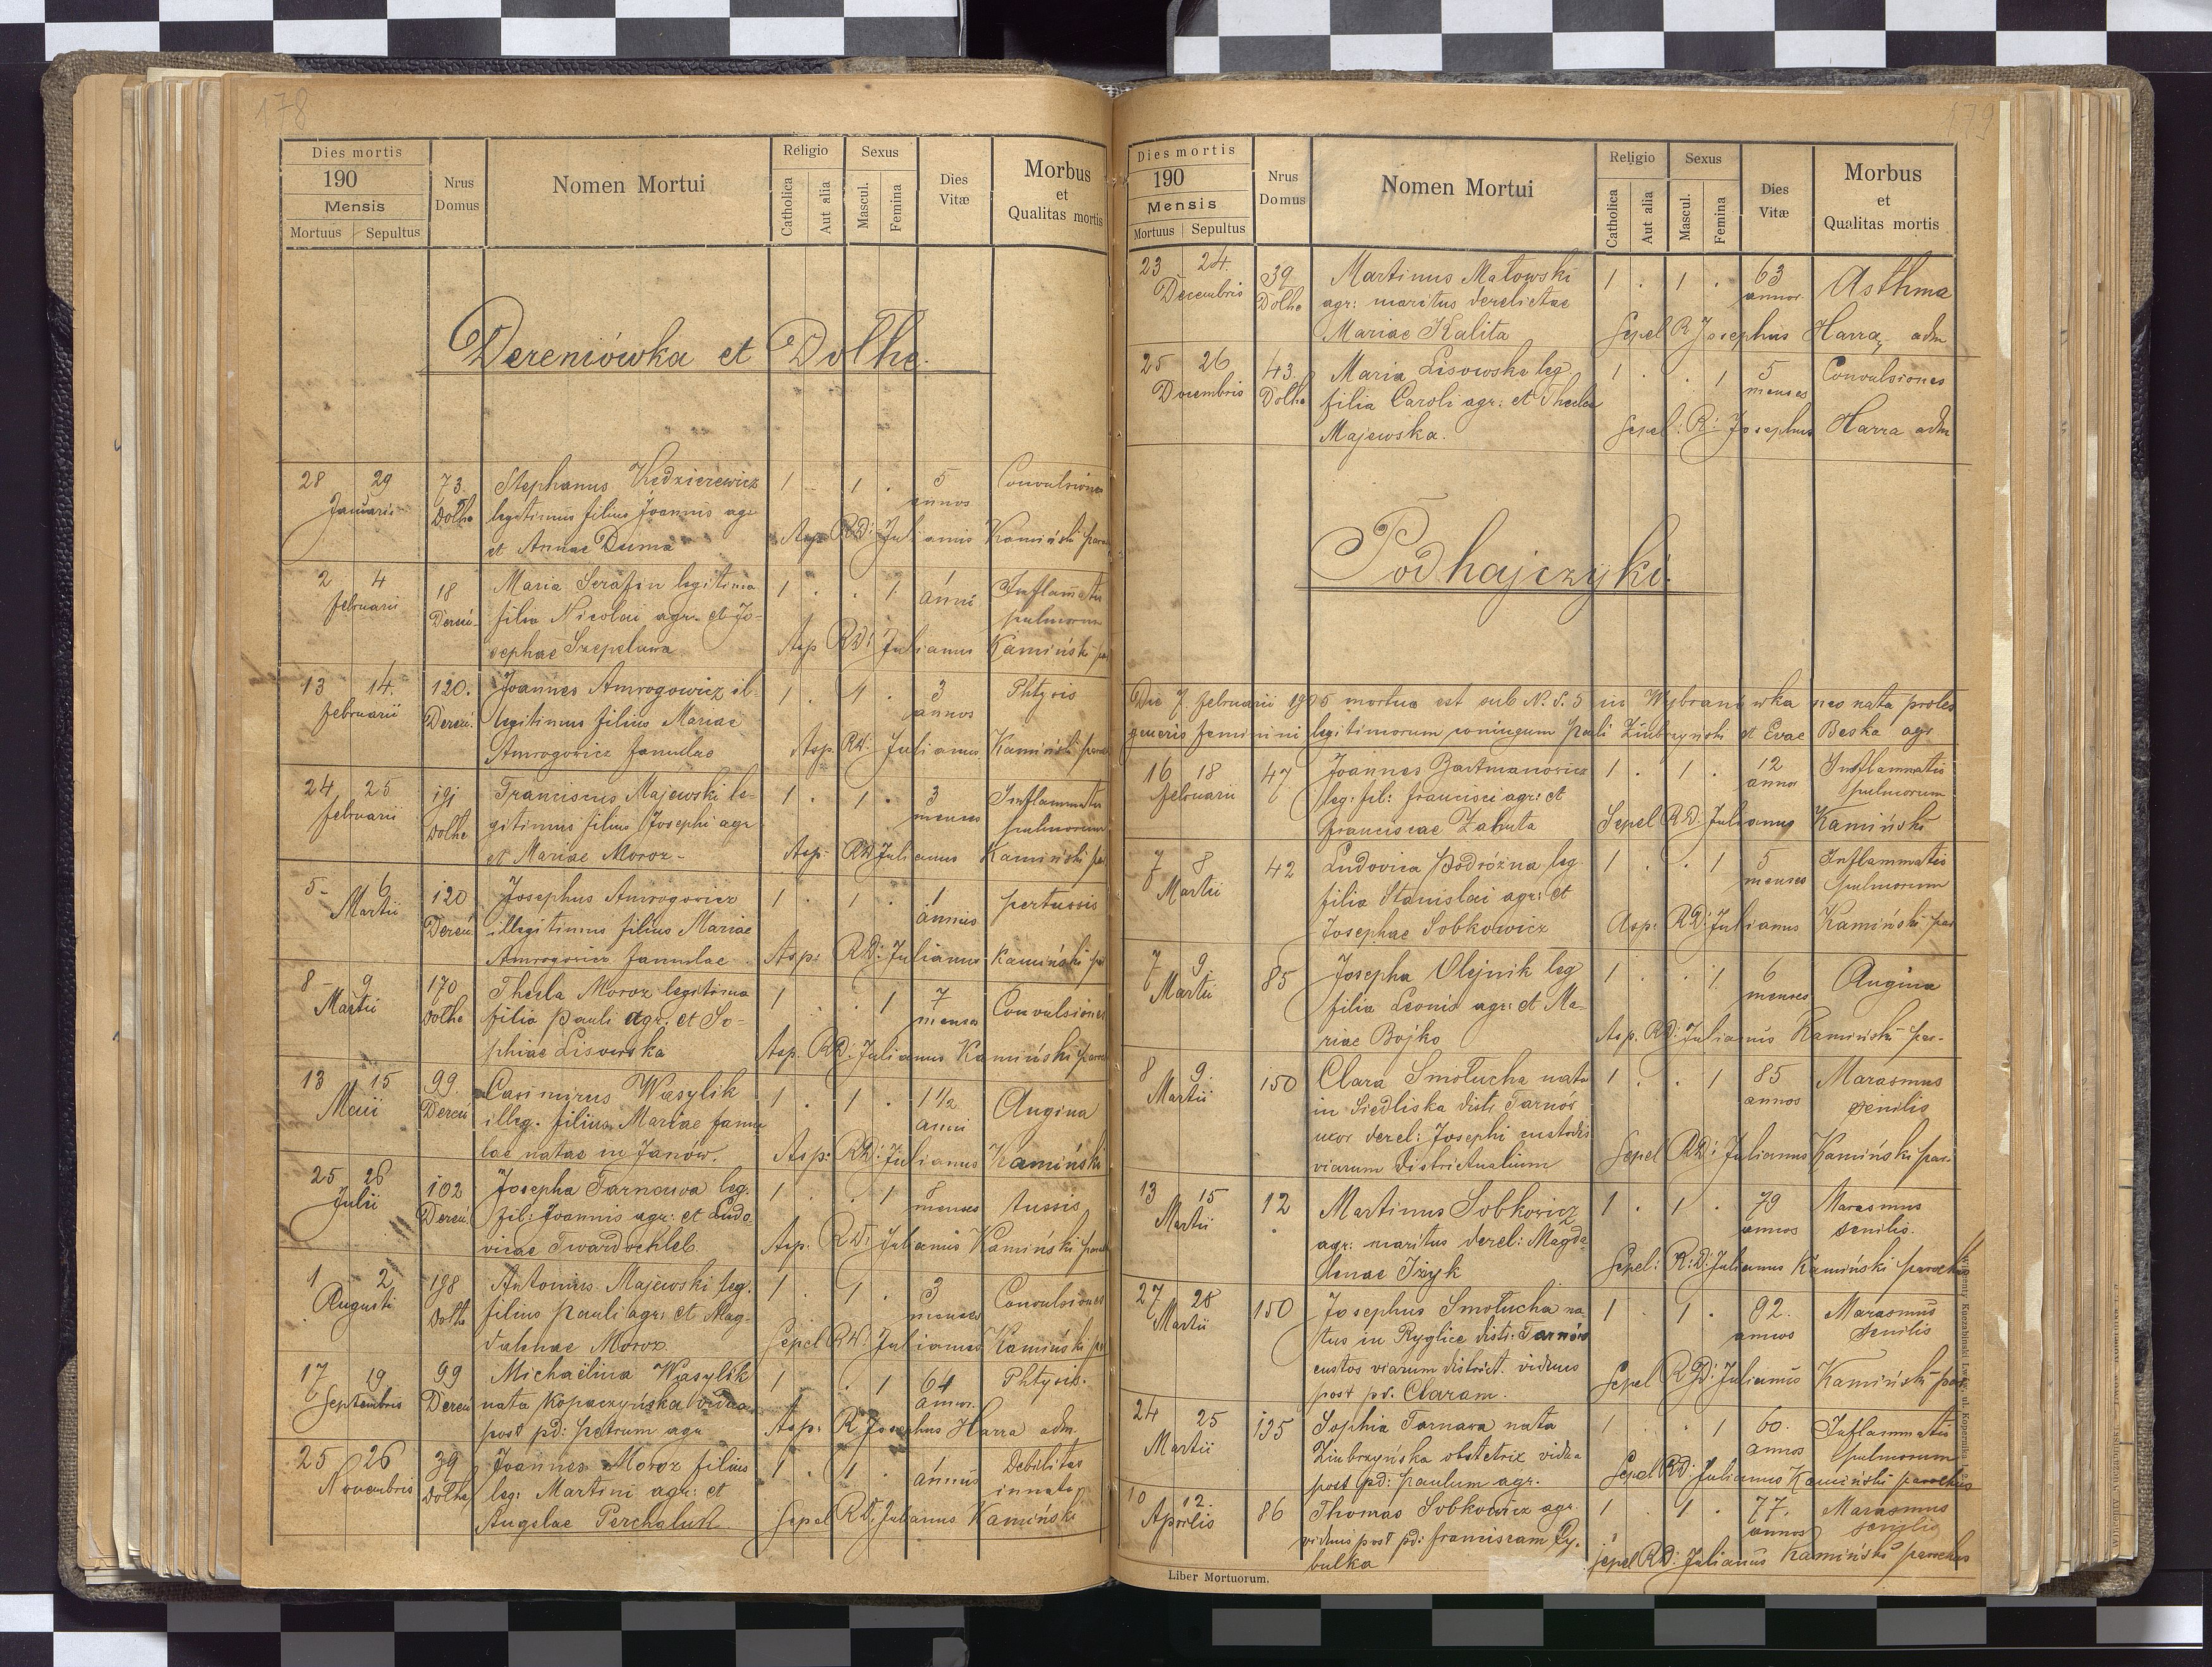 178
Dies mortis
190
Mensis
Mortuus Sepultus
Nrus Domus
Nomen Mortui
Religio
Catholica
Aut alia
Sexus
Mascul.
Femina
Dies Vitæ
Morbus et Qualitas mortis
Dereniówka et Dolhe.
28 29 73 Stephanus Kędzierewicz 1 1 . 5 Convulsiones
Januarii Dolhe legitimus filius Joannis agr annos
et Annae Duma Asp RD: Julianus Kamiński
2 4 18 Maria Serafin legitima 1 . . 1 Inflamatio
februarii Dereń. filia Nicolai agr. et Jo- anni pulmorum
sephae Szepelawa Asp RD: Julianus Kamiński
13 14. 120. Joannes Amrogowicz il- 1 . 1 . 3 Phtysis
februarii Dereń. legitimus filius Mariae annos
Amrogowicz famulae Asp. RD: Julianus Kamiński
24 25 191 Franciscus Majewski le- 1 . 1 . 3 Inflammatio
februarii Dolhe gitimus filius Josephi agr menses pulmorum
et Mariae Moroz- Asp. RD Julianus Kamiński
5- 6 120 Josephus Amrogowicz 1 . 1 . 1 pertussis
Martii Dereń illegitimus filius Mariae annus
Amrogowicz famulae . Asp: RD: Julianus Kamiński
8- 9 170 Thecla Moroz legitima 1 . . 1 7 Convulsiones
Martii Dolhe filia Pauli agr: et So- menses
phiae Lisowska Asp. RD: Julianus Kamiński
13 15 99. Casimirus Wasylik 1 . 1 . 1 1/2 Angina
Maii Dereń illeg. filius Mariae famu anni
lae natae in Janów. Asp: RD: Julianus Kamiński
25 26 102 Josepha Tarnawa leg. 1 . . 1 8 tussis
Julii Dereń fil: Joannis agr: et Ludo menses
vicae Twardochleb Asp. RD: Julianus Kamiński
1 2 198 Antonius Majewski leg. 1 . 1 . 3 Convulsiones
Augusti Dolhe filius Pauli agr: et Mag- menses
dalenae Moroz. Sepel RD: Julianus Kamiński
17 19 99 Michaëlina Wasylik 1 . 1 64 Phtysis.
Septembris Dereń nata Kopaczyńska vidua annor.
post pd: Petrum agr Asp: R Josephus Harra adm
25 26 39 Joannes Moroz filius 1 . 1 . 1 Debilitas
Novembris Dolhe leg: Martini agr: et annus innata
Angelae Perchaluk Sepel RD: Julianus Kamiński
179
Dies mortis
190
Mensis
Mortuus Sepultus
Nrus Domus
Nomen Mortui
Religio
Catholica
Aut alia
Sexus
Mascul.
Femina
Dies Vitæ
Morbus et Qualitas mortis
23 24. 39 Martinus Matowski 1 . 1 . 63 Asthma
Decembris Dolhe agr: maritus derelictae annor
Mariae Kalita Sepel R Josephus Harra, adm
25 26 43. Maria Lisowska leg 1 . . 1 5 Convulsiones
Decembris Dolhe filia Caroli agr: et Theclae menses
Majewska. Sepel: R: Josephus Harra adm
Podhajczyki.
Die 7. februarii 1905 mortua est sub N. S. 5 in Wybranówka neo nata proles
generis feminini legitimorum coniugum Pauli Zimbrzyński et Evae Beska agr
16 18 47 Joannes Bartmanowicz 1 . 1 . 12 Inflammatio
februarii leg: fil: francisci agr: et annos pulmorum
franciscae Zahuta Sepel RD: Julianus Kamiński
7 8 42 Ludovica Podróżna leg. 1 . . 1 5 Inflammatio
Martii filia Stanislai agr: et menses pulmorum
Josephae Sobkowicz Asp: RD: Julianus Kamiński par
7 9. 85 Josepha Olejnik leg 1 . . 1 6 Angina
Martii filia Leonis agr: et Ma- menses
riae Bojko Asp. RD: Julianus Kamiński par-
8 9. 150 Clara Smołucha nata 1 . . 1 85 Marasmus
Martii in Siedliska distr Tarnów annos senilis
uxor derel: Josephi custodis
viarum districtualium Sepel RD: Julianus Kamiński par.
13 15 12 Martinus Sobkowicz 1 . 1 . 79 Marasmus
Martii agr: maritus derel: Magda annos senilis.
lenae Iżyk Sepel: R:D: Julianus Kamiński parochus
27 28 150 Josephus Smołucha na 1 . 1 . 92. Marasmus
Martii tus in Ryglice distr: Tarnów annos senilis
custos viarum district. viduus
post pd. Claram. Sepel RD: Julianus Kamiński par.
24 25 135 Sophia Tarnawa nata 1 . 1 60. Inflammatio
Martii Zimbrzyńska obstetrix vidua annos pulmorum
post pd: Paulum agr. Sepel RD: Julianus Kamiński parochus
10 12. 86 Thomas Sobkowicz agr. 1 . 1 . 77. Marasmus
Aprilis viduus post pd: franciscam Cy- annos senilis
bulka Sepel RD: Julianus Kamiński parochus
Liber Mortuorum.